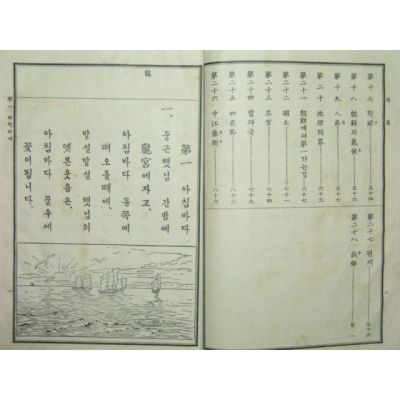 第十七 野球 五十四
第十八 朝鮮의氣候 五十七
第十九
第二十 地理問答 六十三
第二十一 朝鮮에서第一가는것 六十七
第二十二 明太
第二十三 名官
第二十四 七十九
第二十五 四名節
第二十六 中江藤樹 八十六
第二十七 편지 九十六
第二十八 扶餘 百一
第一 아침바다
一、
둥근햇님 간밤에
龍宮에자고、
아침바다 동쪽에
떠오를때에、
방실방실 햇님의
옛븐웃음은、
아침바다 물우에
꽃이됩니다。
第一 아침바다